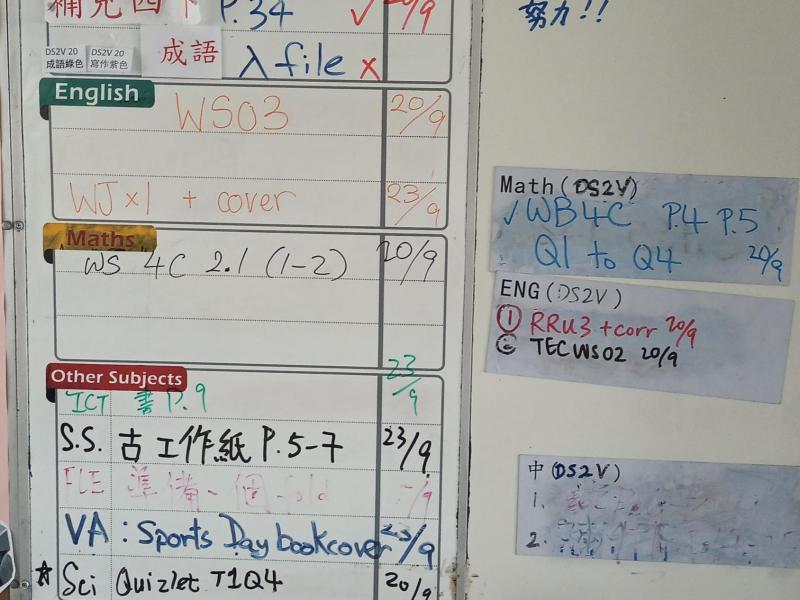 補充四下 P.34 ✓ 20/9
DS2V 20 成語綠色
DS2V 20 寫作紫色
成語 入 file ×
English
WS03 20/9
WJ x1 + cover 23/9
Maths
WS 4C 2.1 (1-2) 20/9
Other Subjects
ICT 書 P.9 23/9
S.S. 古工作紙 P.5-7 23/9
準備一個
VA : Sports Day bookcover 23/9
☆ Sci Quizlet T1Q4 20/9
努力!!
Math (DS2V)
✓ WB4C P.4 P.5
Q1 to Q4 20/9
ENG (DS2V)
① RRU3 + corr 20/9
② TECWS02 20/9
中 (DS2V)
1.
2.